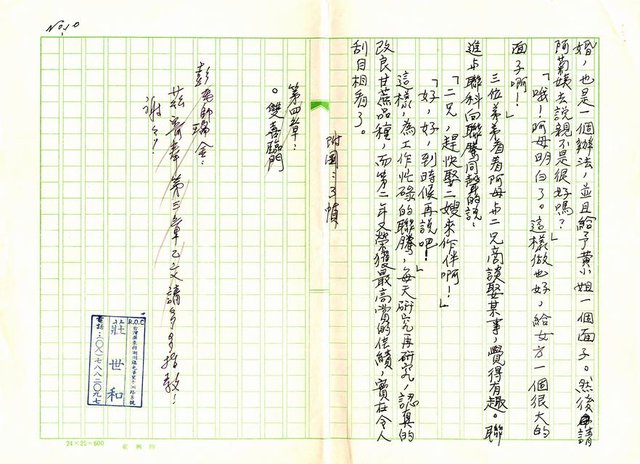 No.10
婚，也是一個辦法，並且給予黃小姐一個面子。然後請
阿菊姨去說親不是很好嗎？」
「哦！阿母明白了。這樣做也好，給女方一個很大的
面子啊！」
三位弟弟看看阿母与二兄商談娶某事，覺得有趣。聯
進与聯科向聯騰同聲的說：
「二兄，趕快娶二嫂來作伴啊！」
「好，好，到時候再說吧！」
這樣，為工作忙碌的聯騰，每天研究再研究，認真的
改良甘蔗品種，而第二年又榮獲最高賞的佳績，實在令人
刮目相看了。
附圖：3幀
第四章：
。雙喜臨門
彭老師瑞金：
茲寄奉第三章之文請多多指教！
謝々！
R.O.C
台灣屏東
莊世和
電話：〇八—七八八二〇九七
24×25=600